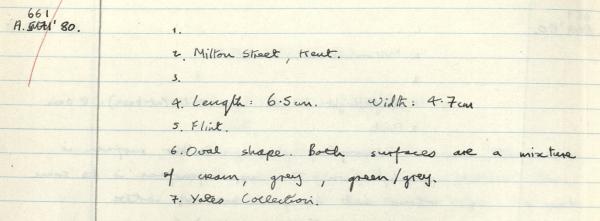 661
A. '80.
1.
2. Milton Street, Kent.
3
4. Length: 6.5cm. Width: 4.7cm
5. Flint.
6. Oval shape. Both surfaces are a mixture
of cream, grey, green/grey.
7. Yates Collection.